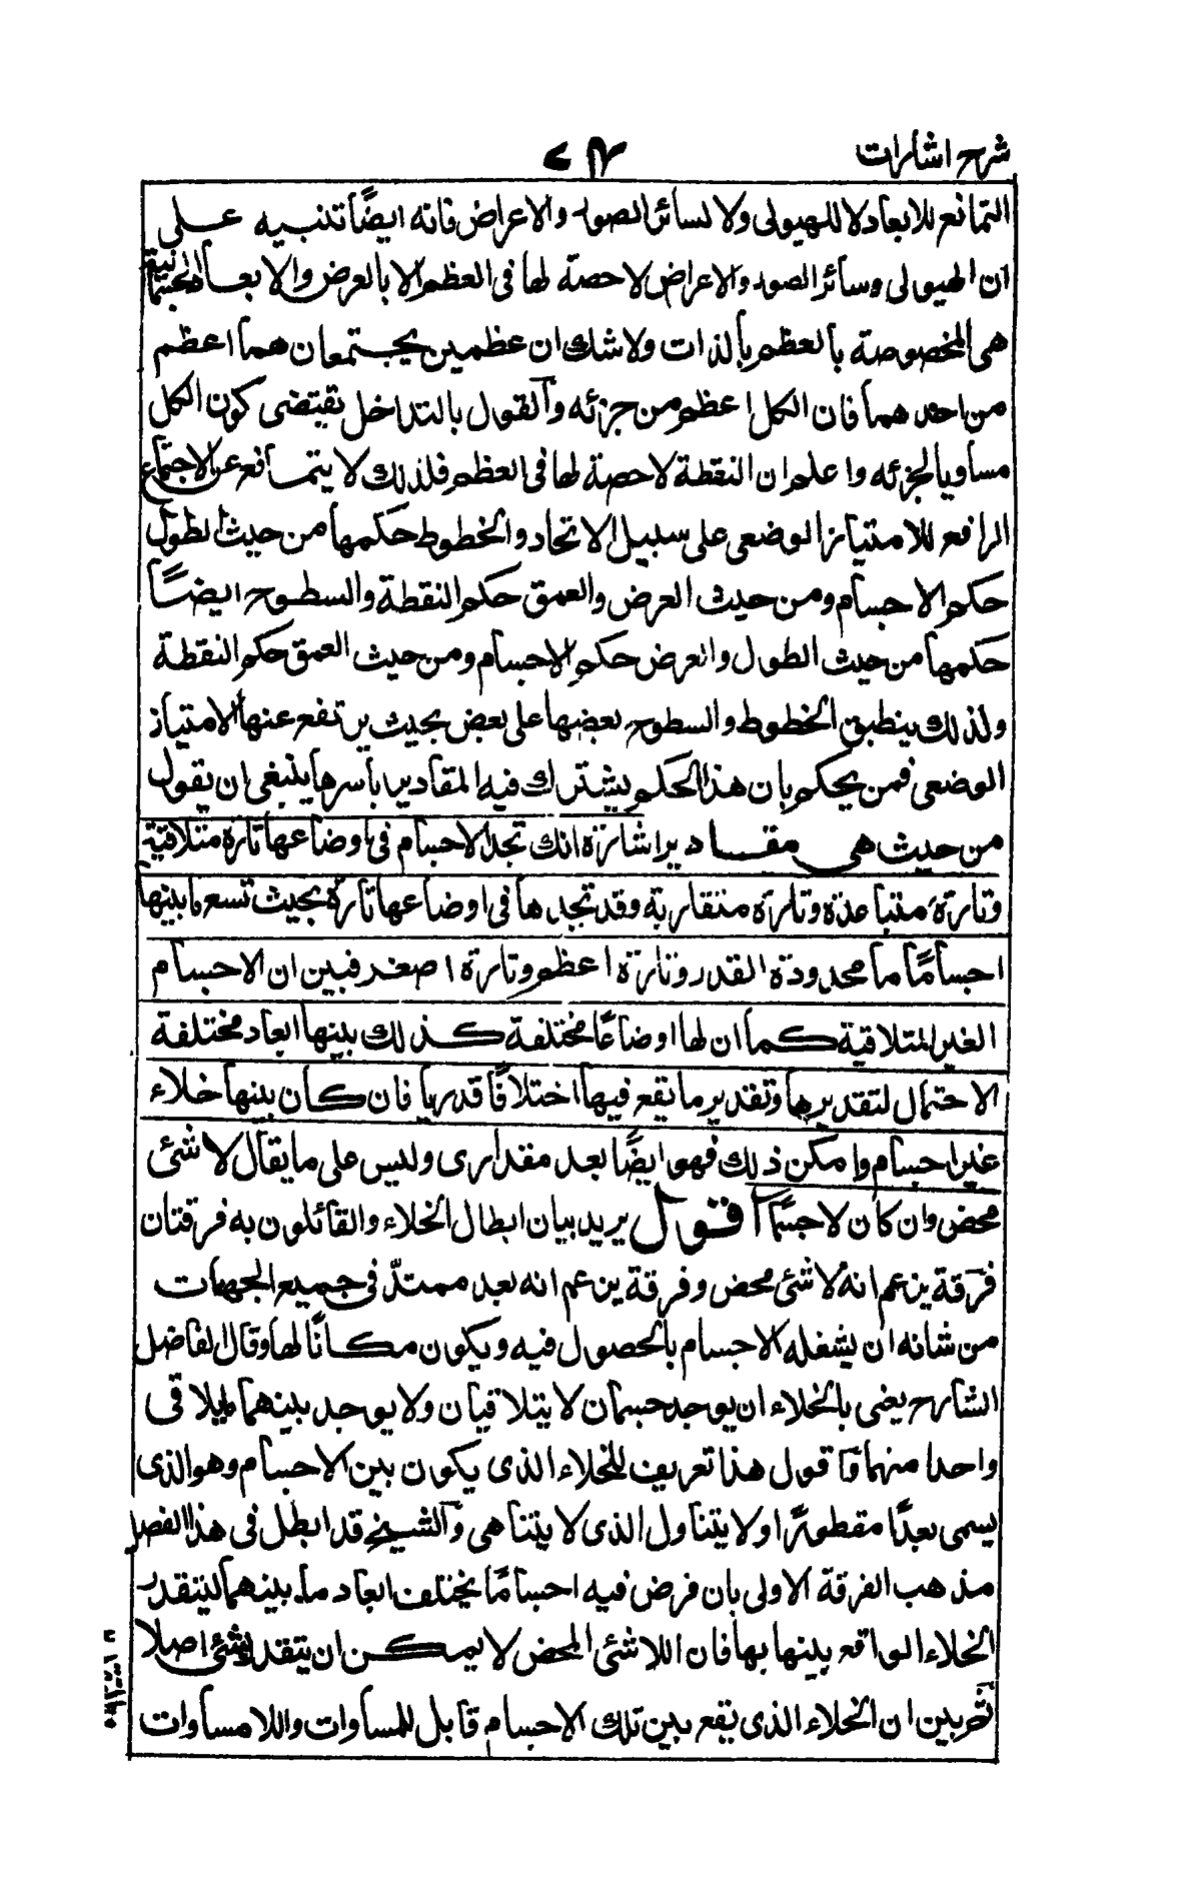 شرح اشارات
التمانع للابعاد لا للهيولى ولا لسائر الصور والاعراض فانه ايضًا تنبيه على
ان الهيولى وسائر الصور والاعراض لا حصة لها فى العظم الا بالعرض والابعاد الجسمانية
هى المخصوصة بالعظم بالذات ولا شك ان عظمين يجتمعان هما اعظم
من احدهما فان الكل اعظم من جزئه والقول بالتداخل يقتضى كون الكل
مساويا لجزئه واعلم ان النقطة لا حصة لها فى العظم فلذلك لا يتمانع عن الاجتماع
الرافع للامتياز الوضعى على سبيل الاتحاد والخطوط حكمها من حيث الطول
حكم الاجسام ومن حيث العرض والعمق حكم النقطة والسطوح ايضًا
حكمها من حيث الطول والعرض حكم الاجسام ومن حيث العمق حكم النقطة
ولذلك ينطبق الخطوط والسطوح بعضها على بعض بحيث يرتفع عنها الامتياز
الوضعى فمن يحكم بان هذا الحكم يشترك فيه المقادير باسرها ينبغى ان يقول
من حيث هى مقادير اشارة انك تجد الاجسام فى اوضاعها تارة متلاقية
وتارة متباعدة وتارة متقاربة وقد تجدها فى اوضاعها تارة بحيث تسع ما بينها
اجسامًا ما محدودة القدر وتارة اعظم وتارة اصغر فبين ان الاجسام
الغير المتلاقية كما ان لها اوضاعًا مختلفة كذلك بينها ابعاد مختلفة
الاحتمال لتقديرها وتقدير ما يقع فيها اختلافًا قدريا فان كان بينها خلاء
غير اجسام وامكن ذلك فهو ايضًا بعد مقدارى وليس على ما يقال لا شئى
محض وان كان لا جسمًا اقول يريد بيان ابطال الخلاء والقائلون به فرقتان
فرقة يزعم انه لا شئ محض وفرقة يزعم انه بعد ممتدّ فى جميع الجهات
من شانه ان يشغله الاجسام بالحصول فيه ويكون مكانًا لها وقال الفاضل
الشارح يعنى بالخلاء ان يوجد جسمان لا يتلاقيان ولا يوجد بينهما ما يلاقى
واحدا منهما واقول هذا تعريف للخلاء الذى يكون بين الاجسام وهو الذى
يسمى بعدًا مفطورًا ولا يتناول الذى لا يتناهى والشيخ قد ابطل فى هذا الفصل
مذهب الفرقة الاولى بان فرض فيه اجسامًا يختلف ابعاد ما بينهما ليتقدر
الخلاء الواقع بينها بها فان اللاشئى المحض لا يمكن ان يتقدر بشئى اصلا
ثم بين ان الخلاء الذى يقع بين تلك الاجسام قابل للمساوات واللامساوات